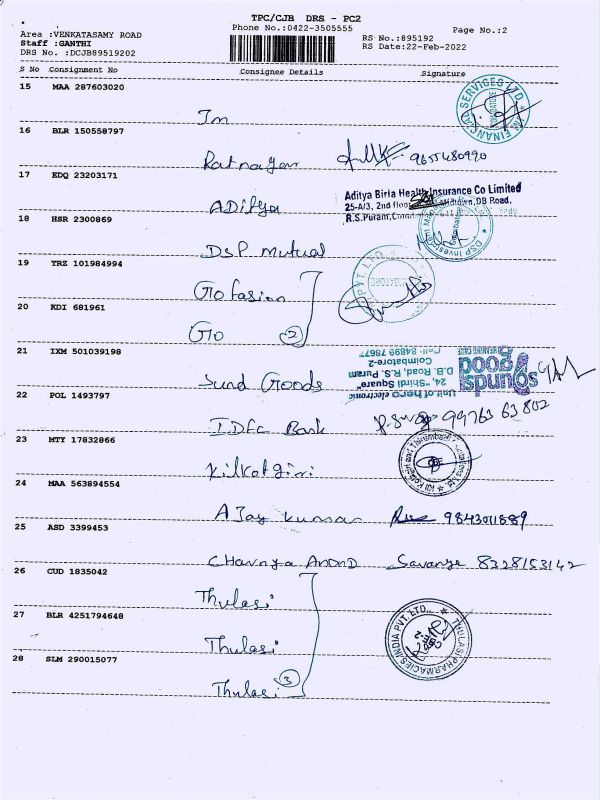 TPC/CJB DRS - PC2
Phone No.:0422-3505555
Page No.:2
Area :VENKATASAMY ROAD
Staff :GANTHI
DRS No. :DCJB89519202
RS No.:895192
RS Date:22-Feb-2022
S No Consignment No Consignee Details Signature
15 MAA 287603020
Im
FINANCIAL SERVICES LTD
16 BLR 150558797
Ratnagen 9655480990
17 EDQ 23203171
Aditya
Aditya Birla Health Insurance Co Limited
25-A/3, 2nd floor, Midtown, DB Road,
R.S.Puram,
18 HSR 2300869
DSP Mutual
DSP Investment
19 TRZ 101984994
Go Fasion
20 KDI 681961
Go 2
21 IXM 501039198
Sund Goods
sounds good
Unit of hero electronic
24, "Shirdi Square"
D.B. Road, R.S. Puram
Coimbatore-2
Cell: 84899 78677
22 POL 1493797
IDFC Bank 99763 63802
23 MTY 17832866
Kilkotgiri
24 MAA 563894554
AJay kumar 9843011889
25 ASD 3399453
CHavnya Anond Savanye 8328153142
26 CUD 1835042
Thulasi
27 BLR 4251794648
Thulasi
THULASI PHARMACIES INDIA PVT. LTD.,
28 SLM 290015077
Thulasi 3